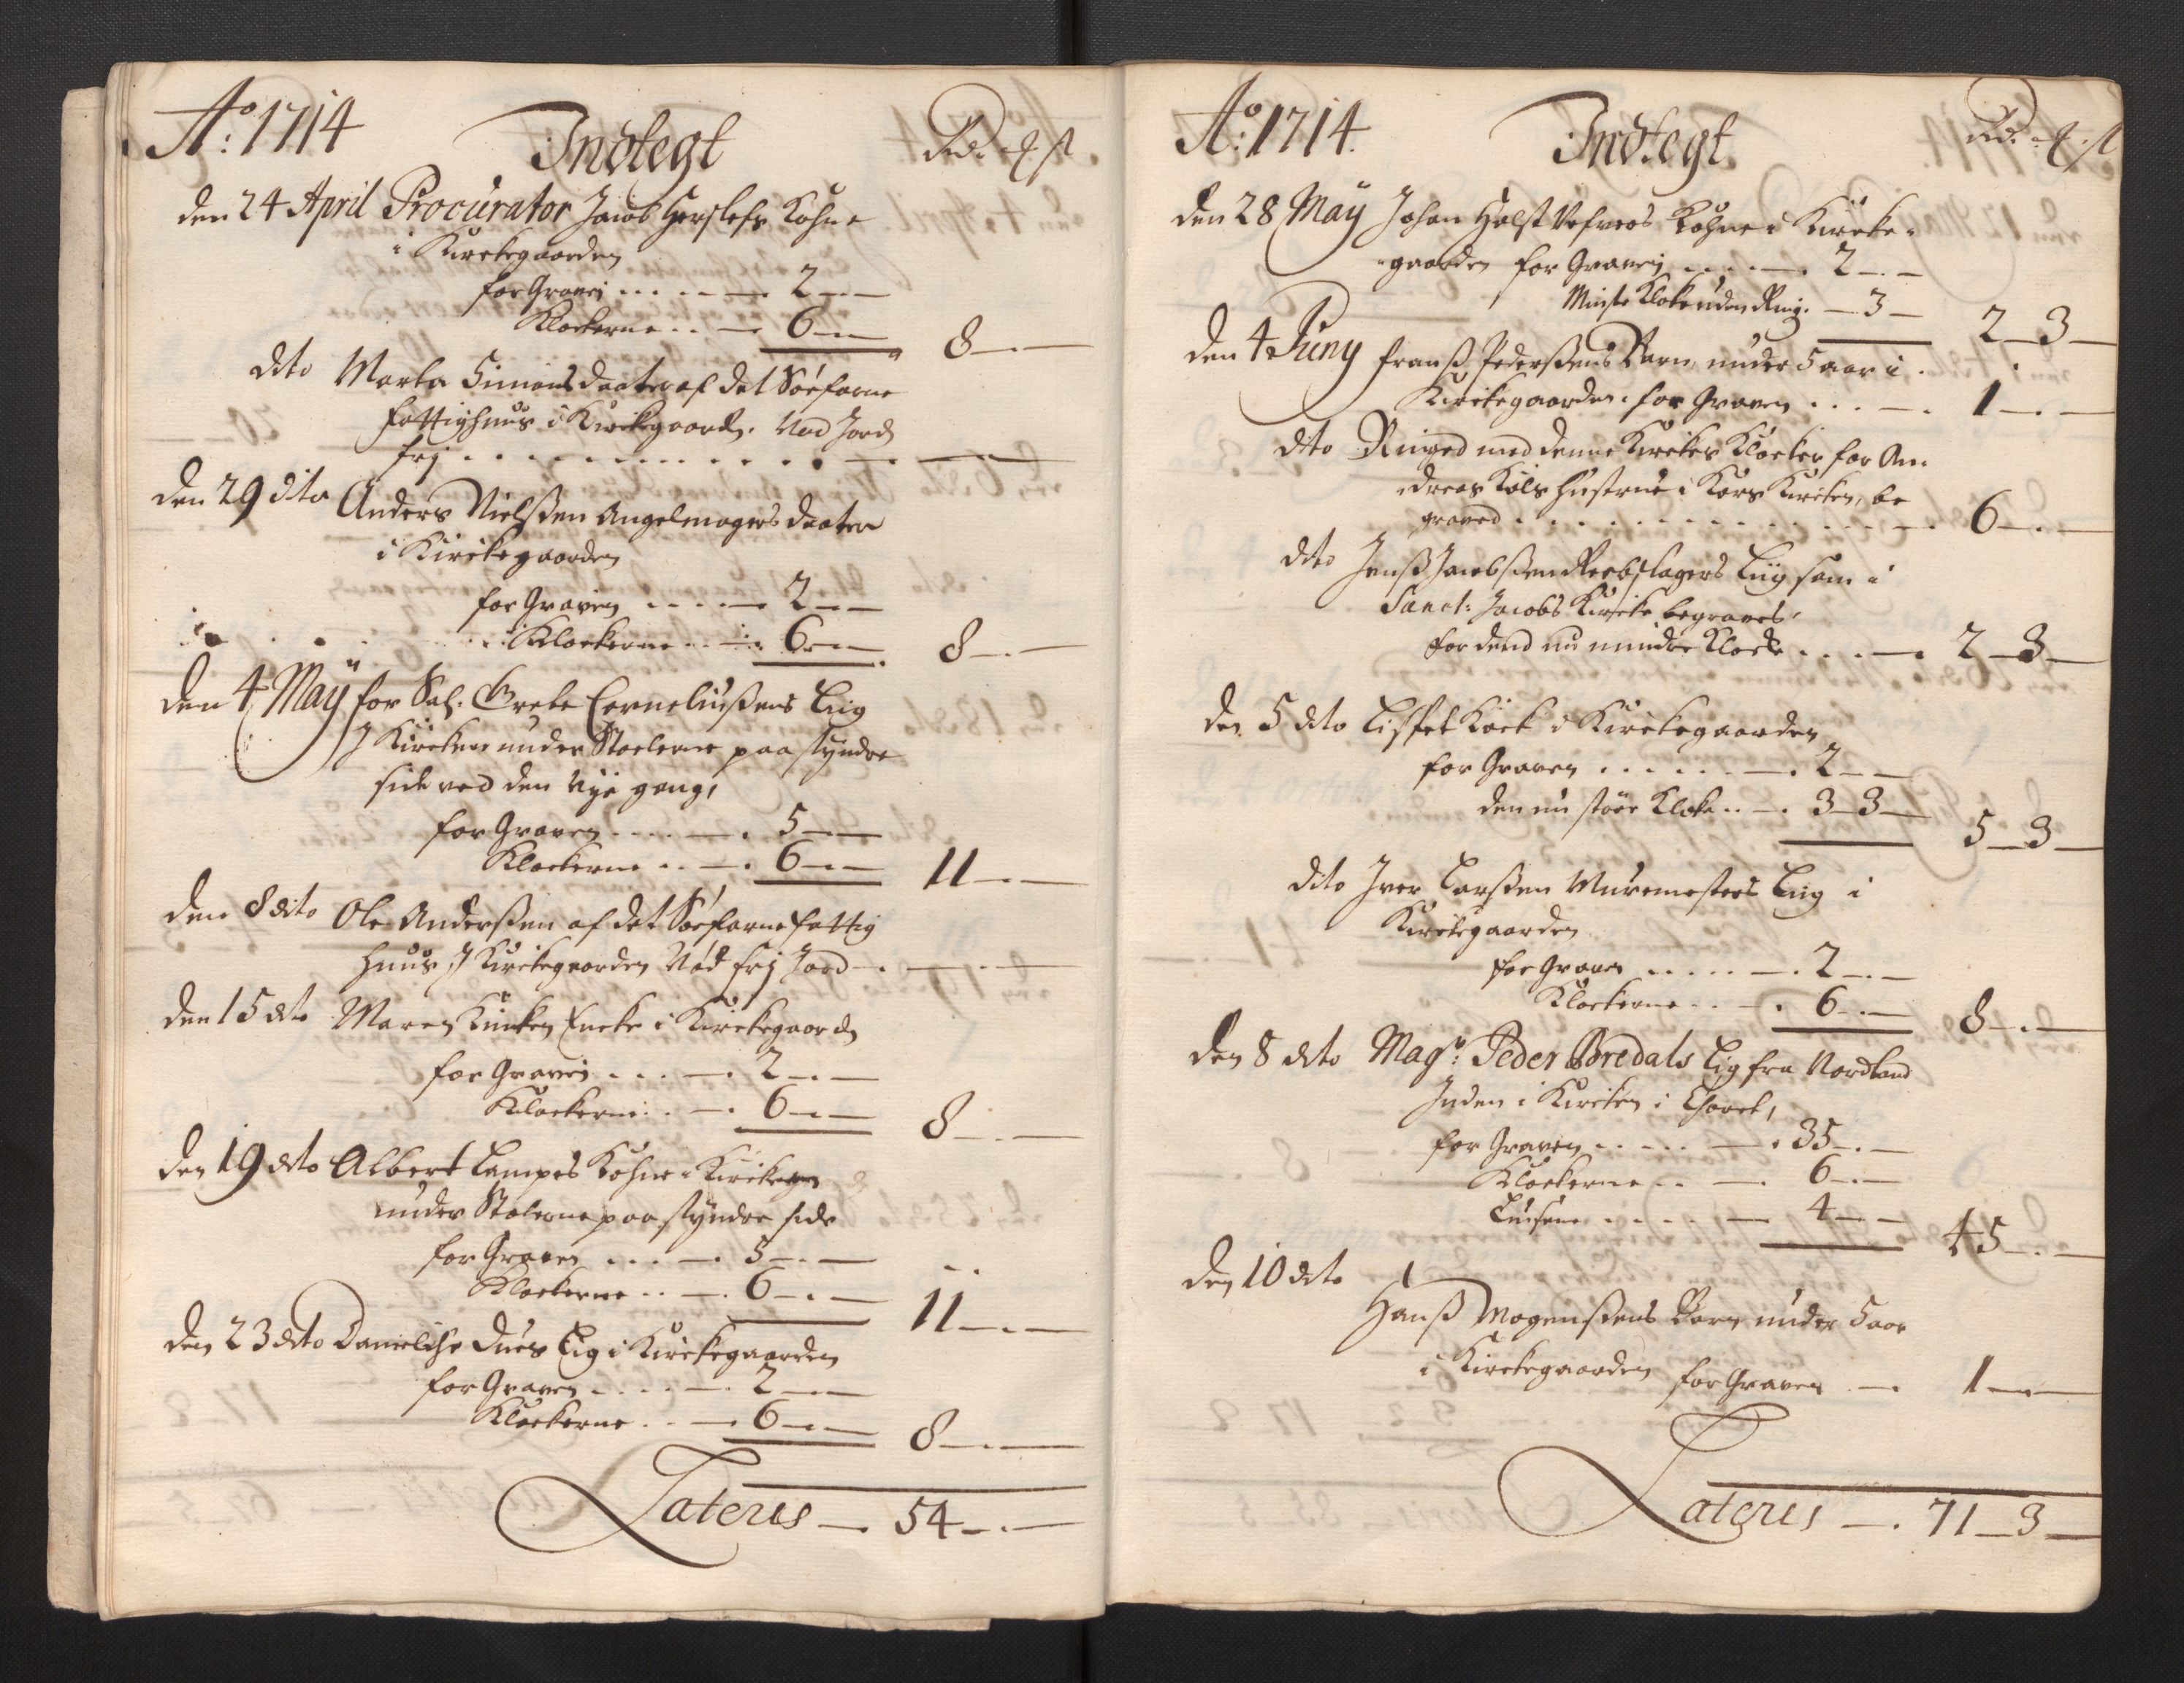 Ao: 1714
Indtegt
Rdr. ₰ s
den 24 April Procurator Jacob Herslefs Kohne
i Kirckegaarden
for Graven . . . . . — 2 — —
Klockerne . . — 6 — — 8 — —
dito Marta Simons daater af det Söefarne
fattighuus i Kirckegaard. Ved Jord
frj . . . . . . . . . . . — — —
den 29 dito Anders Nielssen Angelmagers daater
i Kirckegaarden
for Graven . . . . — 2 — —
Klockerne . . — 6 — — 8 — —
den 4 Maÿ for Sal. Grete Corneliussens Liig
I Kircken under Stoelerne paa syndre
side ved den nye gang,
for Graven . . . . — . 5 — —
Klockerne . . — . 6 — — 11 — —
den 8 dito Ole Anderssen af det Söefarne fattig
huus, I Kirckegaarden Ved frj Jord — . — . —
den 15 dito Maren Kinken Encke i Kirckegaard
for Graven . . . — . 2 — —
Klockerne . . — . 6 — — 8 — —
den 19 dito Albert Lampes Kohne i Kircken
under Stolerne paa syndre side
for Graven . . . — . 5 — . —
Klockerne . . — . 6 — . — 11 — . —
den 23 dito Danielche Dues Lig i Kirckegaarden
for Graven . . . . — . 2 — —
Klockerne . . — . 6 — . — 8 — . —
Lateris — . 54 — . —
Ao: 1714.
Indtegt
Rdr. ₰ s
den 28 Maÿ Johan Holst Vefvers Kohne i Kircke-
gaarden for Graven . . . . — . 2 — . —
Minste Klocke uden Ring. — 3 — 2 — 3 —
den 4 Juny franss Pederssens Barn, under 5 aar i
Kirckegaarden. for Graven . . . — . 1 — . —
dito Ringed med denne Kirckes Klocker for An-
dreas Kols Hustrue i Kors Kircken, be
graved . . . . . . . . . . . . — . 6 — . —
dito Jenss Jacobssen Rebslagers Liig som i
Sanct: Jacobs Kircke begraves.
for dend nu mindre Klocke . . . — . 2 — 3 —
den 5 dito Lisbet Kock i Kirckegaarden
for Graven . . . . . . — . 2 — —
den nu störe Klocke . . — . 3 — 3 — 5 — 3 —
dito Iver Larssen Muremesters Liig i
Kirckegaarden
for Graven . . . . . — . 2 — . —
Klockerne . . — . 6 — . — 8 — . —
den 8 dito Magr: Peder Bredals Lig fra Nordland
Inden i Kircken i Choret,
for Graven . . . . . — . 35 — . —
Klockerne . . — . 6 — . —
Luisene . . . . . — 4 — — 45 — . —
den 10 dito
Hanss Mogenssens Barn under 5 aar
i Kirckegaarden for Graven . — . 1 — . —
Lateris — . 71 — 3 —